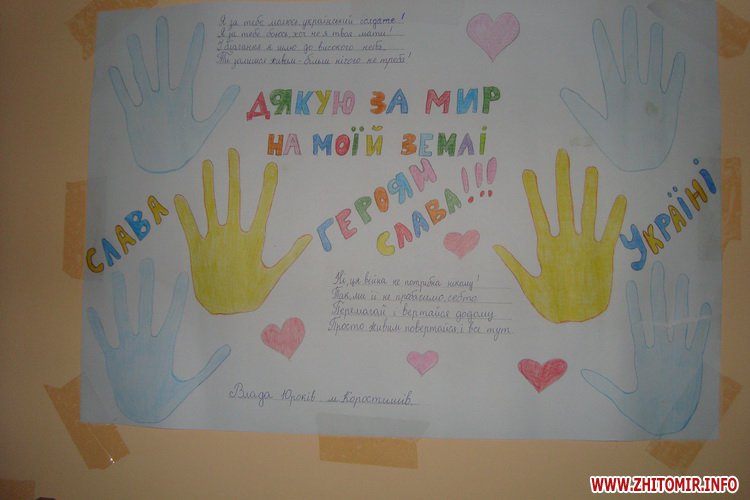 Я за тебе молюсь, український солдате!
Я за тебе боюсь, хоч не я твоя мати!
І благання я шлю до високого неба,
Ти залишся живим - більш нічого не треба!
ДЯКУЮ ЗА МИР
НА МОЇЙ ЗЕМЛІ
СЛАВА УКРАЇНІ
ГЕРОЯМ
СЛАВА!!!
Ні, ця війна не потрібна нікому!
Так, ми й не просимо,
Перемагай і вертайся додому
Просто живим повертайся і все тут.
Влада Юрків м. Коростишів
WWW.ZHITOMIR.INFO